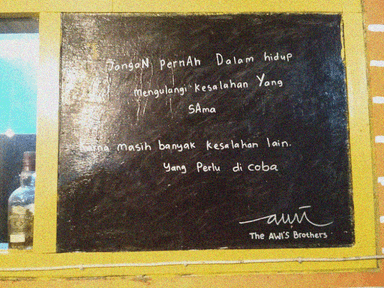 JangaN PernAh Dalam hidup
mengulangi kesalahan Yang
SAma
Karna masih banyak kesalahan lain.
Yang Perlu di coba
awi
The AWI'S Brothers